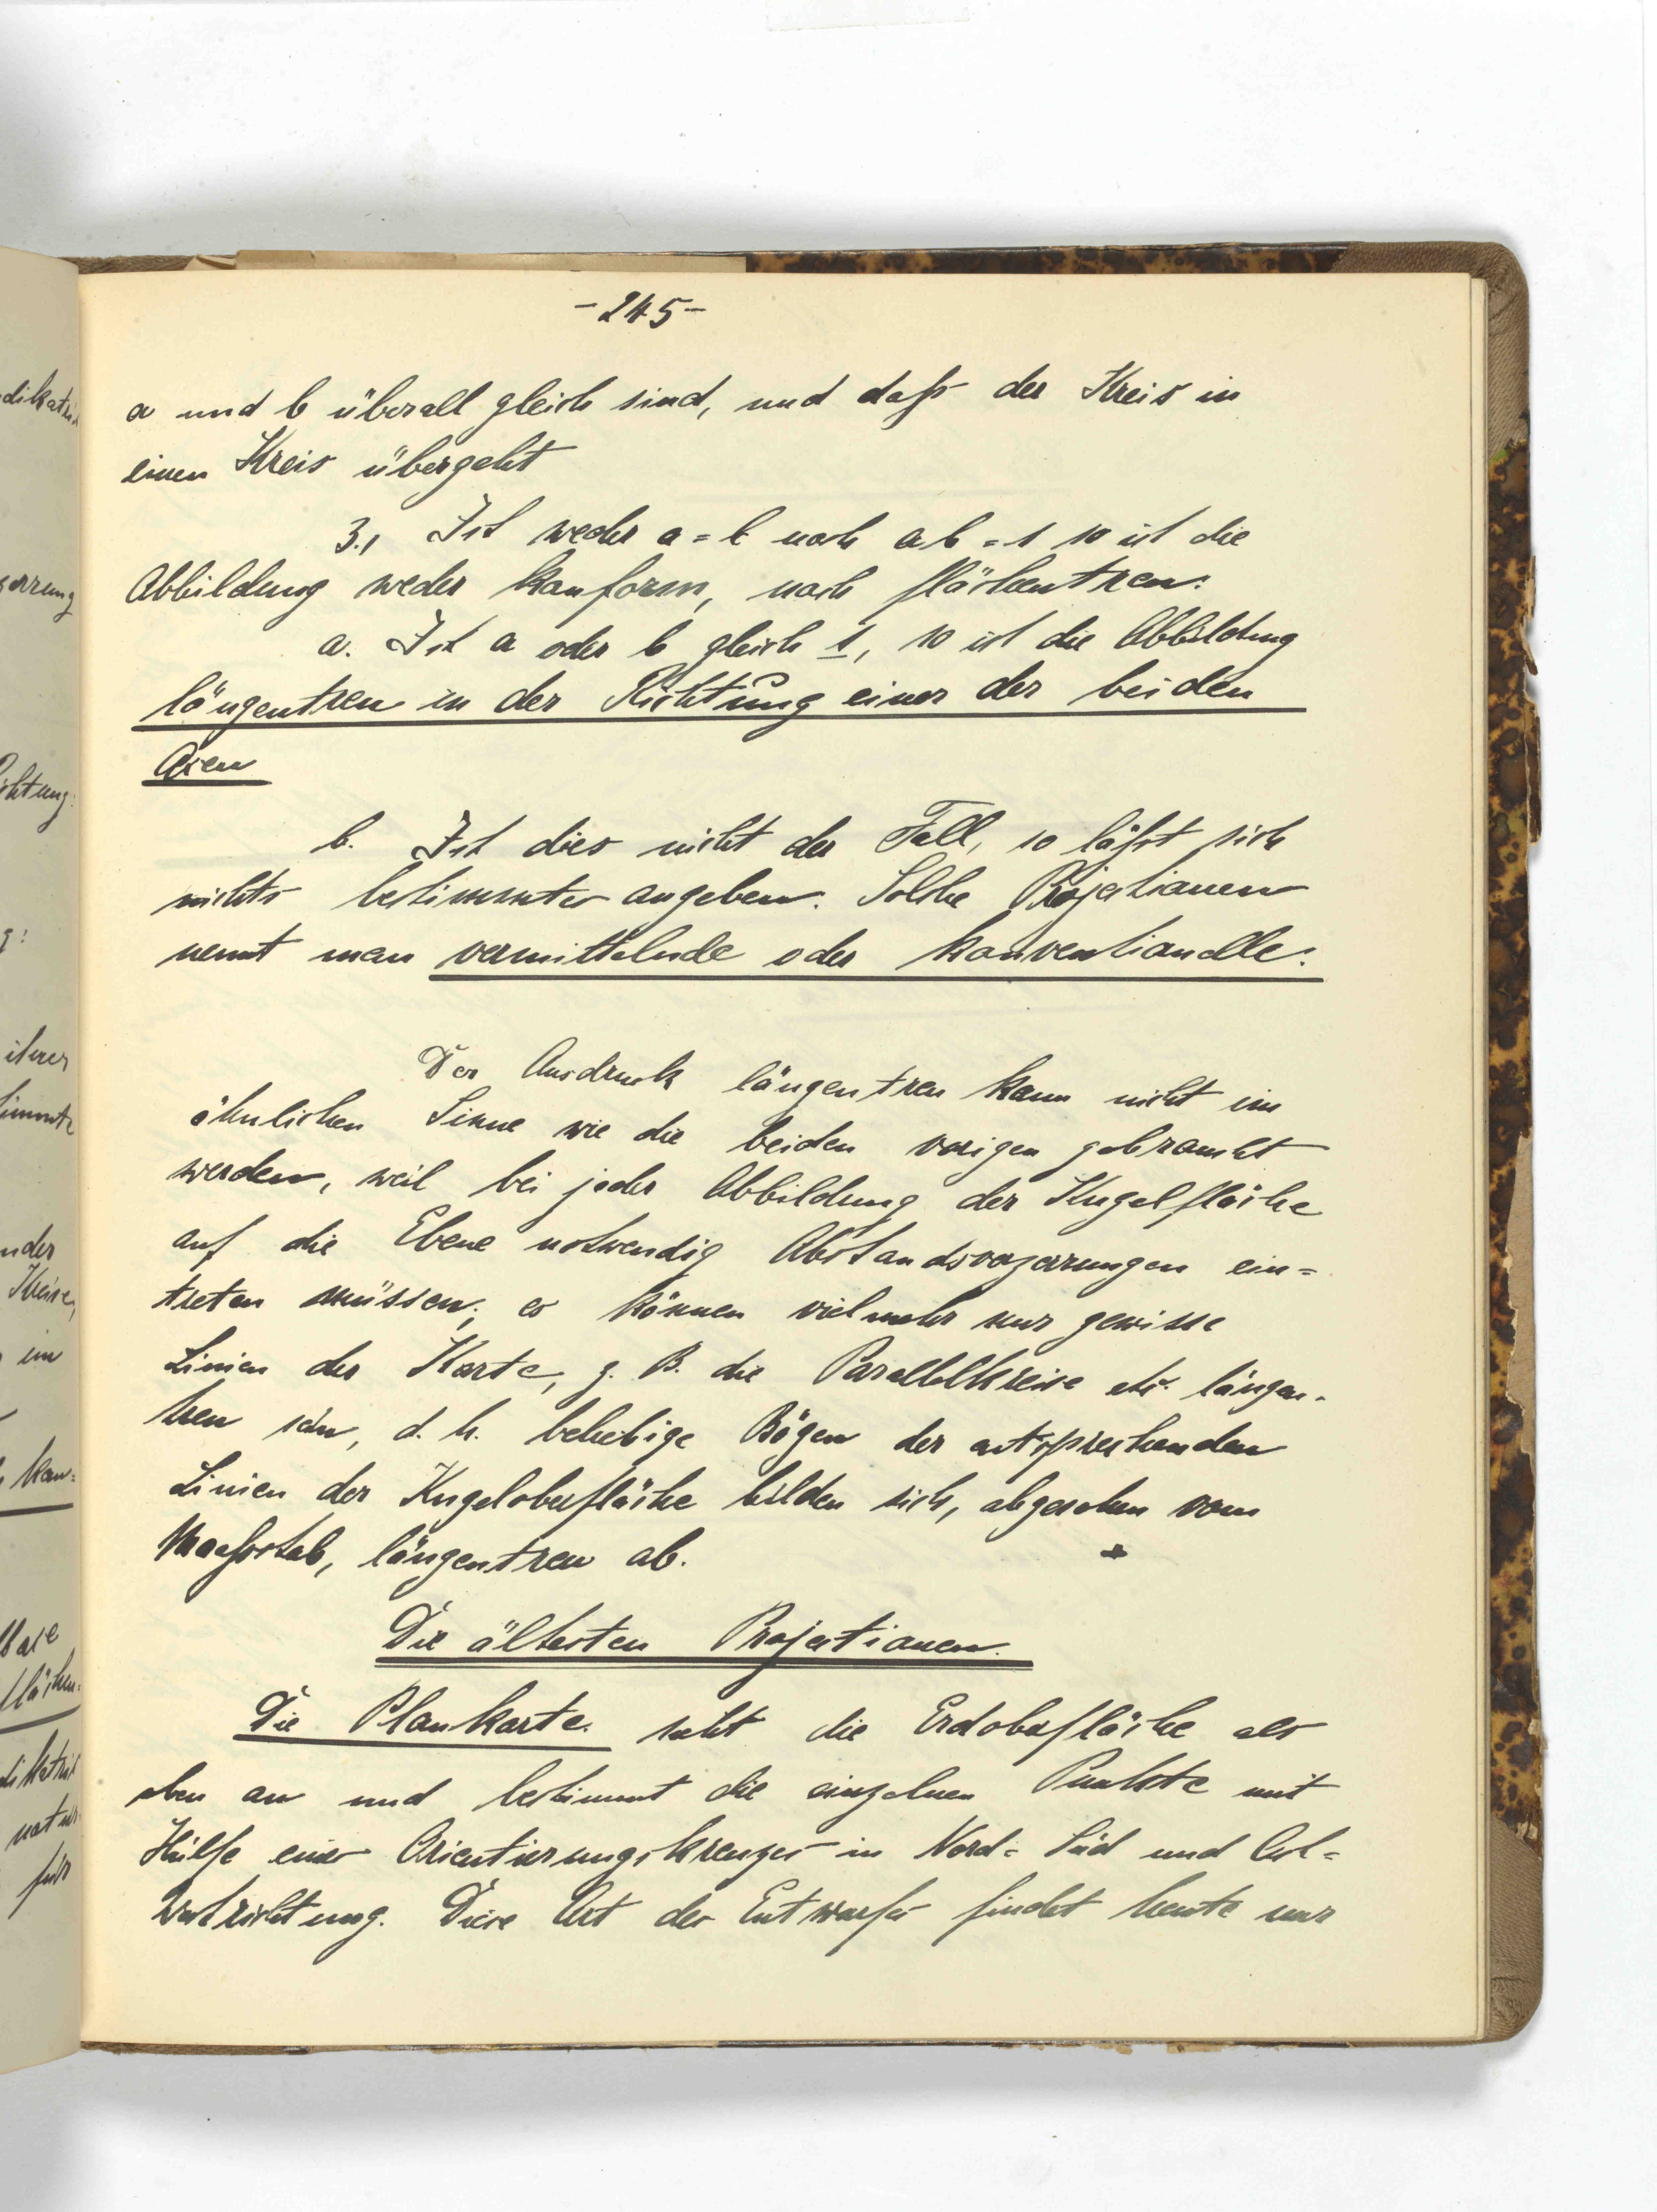 -245-
a und b überall gleich sind, und daß der Kreis in
einen Kreis übergeht
3., Ist weder a = b noch ab = 1 so ist die
Abbildung weder konform, noch flächentreu:
a. Ist a oder b gleich 1, so ist die Abbildung
längentreu in der Richtung einer der beiden
Axen
b. Ist dies nicht der Fall, so läßt sich
nichts bestimmtes angeben. Solche Projectionen
nennt man vermittelnde oder konventionelle.
Der Ausdruck längentreu kann nicht im
ähnlichen Sinne wie die beiden vorigen gebraucht
werden, weil bei jeder Abbildung der Kugelfläche
auf die Ebene notwendig Abstandsverzerrungen ein=
treten müssen; es können vielmehr nur gewisse
Linien der Karte, z. B. die Parallelkreise etc. längen-
treu sein, d. h. beliebige Bögen der entsprechenden
Linien der Kugeloberfläche bilden sich, abgesehen vom
Maaßstab, längentreu ab.
Die ältesten Projectionen.
Die Plankarte. sieht die Erdoberfläche als
eben an und bestimmt die einzelnen Punkte mit
Hülfe eines Orientierungskreuzes in Nord= Süd und Ost=
Westrichtung. Diese Art des Entwurfes findet heute nur
dikatri
zerrung
chtung:
g:
ihrer
timmte
nder
Kreise,
im
kon=
flächen=
dikatrix
natur
für